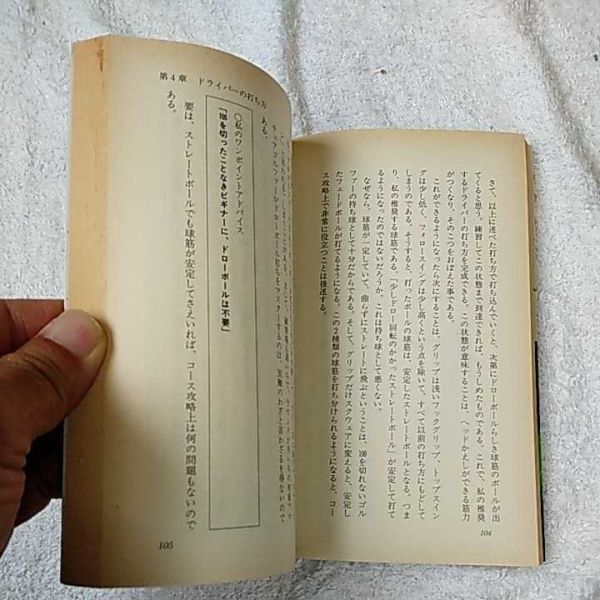 さて、以上に述べた打ち方で打ち込んでいくと、次第にドローボールらしき球筋のボールが出
てくると思う。練習してこの状態まで到達できれば、もうしめたものである。これで、私の推奨
するドライバーの打ち方を完成できる。この状態が意味することは、ヘッドかえしができる筋力
がつくなり、そのこつをおぼえた事である。
これができるようになったら次にすることは、グリップは浅いフックグリップ、トップスイン
グは少し低く、フォロースイングは少し高くという点を除いて、すべて以前の打ち方にもどして
しまうのである。そうすると、打ったボールの球筋は、安定したストレートボールとなる。つま
り、私の推奨する球筋である。「少しドロー回転のかかったストレートボール」が安定して打て
るようになったのではないだろうか。これは持ち球として悪くない。
なぜなら、球筋が一定していて、曲らずにストレートに飛ぶということは、100を切れないゴル
ファーの持ち球として十分だからである。そして、グリップだけスクウェアに変えると、安定し
たフェードボールが打てるようになる。この2種類の球筋を打ち分けられるようになると、コー
ス攻略上で非常に役立つことは後述する。
104
第4章 ドライバーの打ち方
チュアゴルファーがドローボール打ちをマスターするのは、至難のわざと言わざるを得ないので
ある。
○私のワンポイントアドバイス
「100を切ったことなきビギナーに、ドローボールは不要」
要は、ストレートボールでも球筋が安定してさえいれば、コース攻略上は何の問題もないので
ある。
105